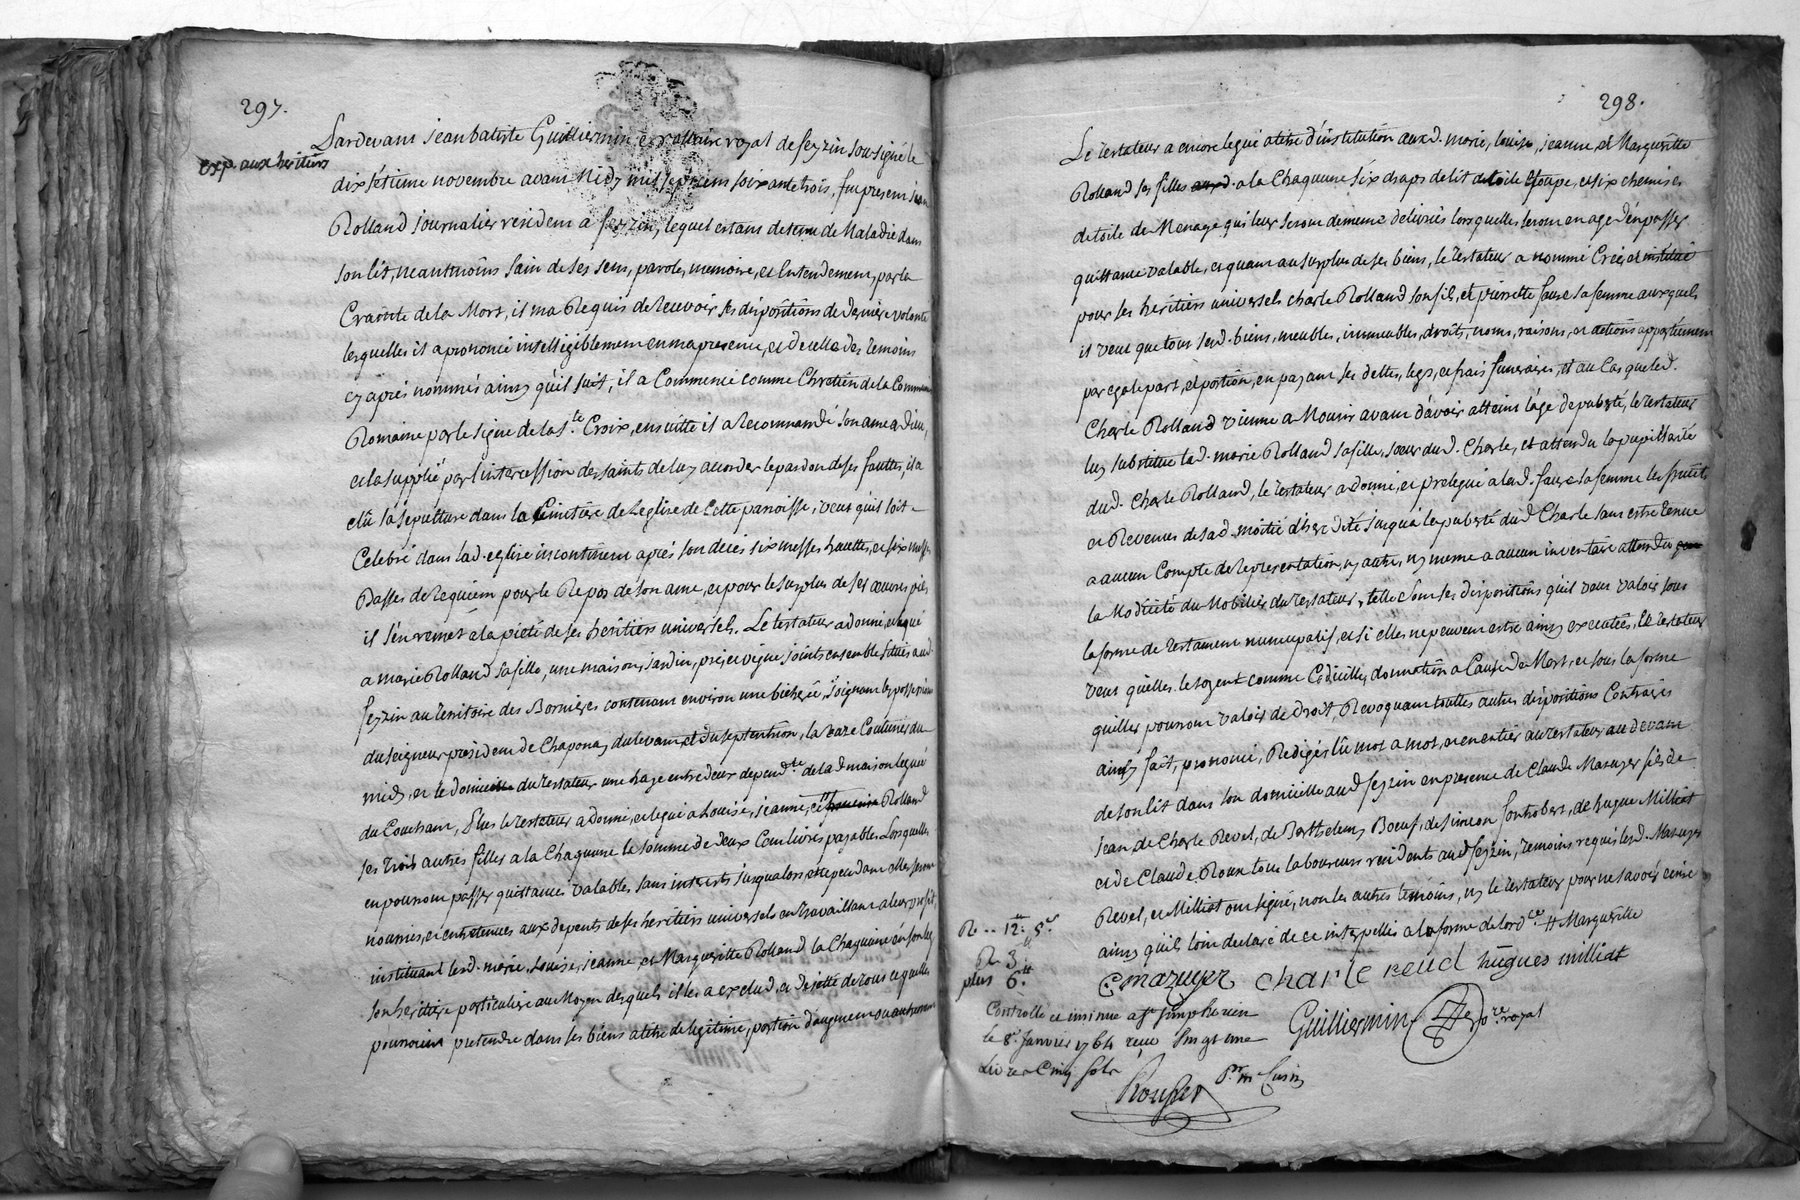 297.
exp. aux heritiers
Pardevant jean batiste Guilliermin notaire royal de feyzin sousigné le
dix sétieme novembre avant Midy mil sept cens soixante trois, fut present jean
Rolland journalier resident a feyzin, lequel estant detenu de Maladie dans
son lit, neantmoins sain de ses sens, parole, memoire, et Entendement, par la
Crainte de la Mort, il ma Requis de Recevoir ses dispositions de derniere volonté
lesquelles il a prononcé intelligiblement en ma presence, et de celle des temoins
cy aprés nommé ainsy qu'il suit, il a Commencé comme Chretien de la Communion
Romaine par le signe de la Ste Croix, ensuitte il a Recommandé son ame a dieu,
et la supplié par l'intercession des saints de luy accorder le pardon de ses fauttes, il a
elû sa sepulture dans la Cimitiére de L'eglise de Cette paroisse, veut quil soit
Celebré dans lad. eglise incontinent aprés son décés six messes hautte, et six messes
Basses de requiem pour le Repos de son ame, et pour le surplus de ses œuvres pies
il s'en remet a la pieté de ses heritiers universels. Le testateur a donné, et legué
a marie Rolland sa fille, une maison, jardin, pré, et vigne joints ensemble situés aud.
feyzin au territoire des Bornieres contenant environ une bicherée, joignant les possessions
du seigneur president de Chaponay du levant et du septentrion, la du
midy, et le domicille du testateur une haye entre deux depend.te de lad. maison leguée
du Couchant, Plus le testateur a donné, et legué a Louise, jeanne, et Rolland
ses trois autres filles a la Chaquune la somme de deux Cent livres payables Lorsquelles
en pourront passer quittances valables sans interests jusqualors et cependant elles seront
nourries, et entretenues aux depents de ses heritiers universels en travaillant a leur profit,
instituant lesd. marie, Louise, jeanne et Margueritte Rolland la Chaquune en son leg
son heritiere particuliere au Moyen desquels il les a exclud, et dejetté de tous ce quelles
pourroient pretendre dans ses biens a titre de legitime, portion d'augment ou autrement
298.
Le testateur a encore legué a titre d'institution auxd. marie, louise, jeanne, et Margueritte
Rolland ses filles auxd. a la Chaquune six draps de lit de toile Etoupe, et six chemises
de toile de Menage qui leur seront de meme delivrés lorsquelles seront en age d'en passer
quittance valable, et quant au surplus de ses biens, le testateur a nommé Creé, et institué
pour ses heritiers universels charle Rolland son fils, et pierrette faure sa femme auxquels
il veut que tous sesd. biens, meubles, immeubles, droits, noms, raisons, et actions appartiennent
par egale part, et portion, en payant ses dettes, legs, et frais funeraires, et au Cas que led.
Charle Rolland vienne a Mourir avant d'avoir atteint l'age de puberté, le testateur
luy substitue lad. marie Rolland sa fille, sœur dud. Charle, et attendu la pupillarité
dud. Charle Rolland, le testateur a donné, et prelegué a lad. faure sa femme les fruits
et Revenus de sad. moitié d'heredité jusqua la puberté dud. Charle sans estre tenue
a aucun Compte de representation, ny autre, ny meme a aucun inventaire attendu
la Modicité du Mobilier du testateur, telle sont ses dispositions qu'il veut valoir sous
la forme de testament nuncupatif, et si elles ne peuvent estre ainsy executées, le testateur
veut quelles le soyent comme Codicille, donnation a Cause de Mort, et sous la forme
quelles pourront valoir de droit, Revoquant touttes autres dispositions Contraires
ainsy fait, prononcé, Redigé lû mot a mot, et en entier au testateur au devant
de son lit dans son domicille aud feyzin en presence de Claude Mazuyer fils de
jean, de Charle Revel, de Barthelemy Bœuf, de simeon, de hugue Milliat
et de Claude Roux tous laboureurs residents aud feyzin, temoins requis lesd. Mazuyer
Revel, et Milliat ont signé, non les autres temoins, ny le testateur pour ne savoir ecrire
ainsy quils lont declaré de ce interpellés a la forme de lord.ce # Marguerite
C mazuyer charle revel hugues milliat
Guilliermin no.re royal
R .. 12. 5.s
R 3.
plus 6.
Controllé et insinué a St Simphorien
le 8.e Janvier 1764 receu Vingt une
Livres Cinq sols